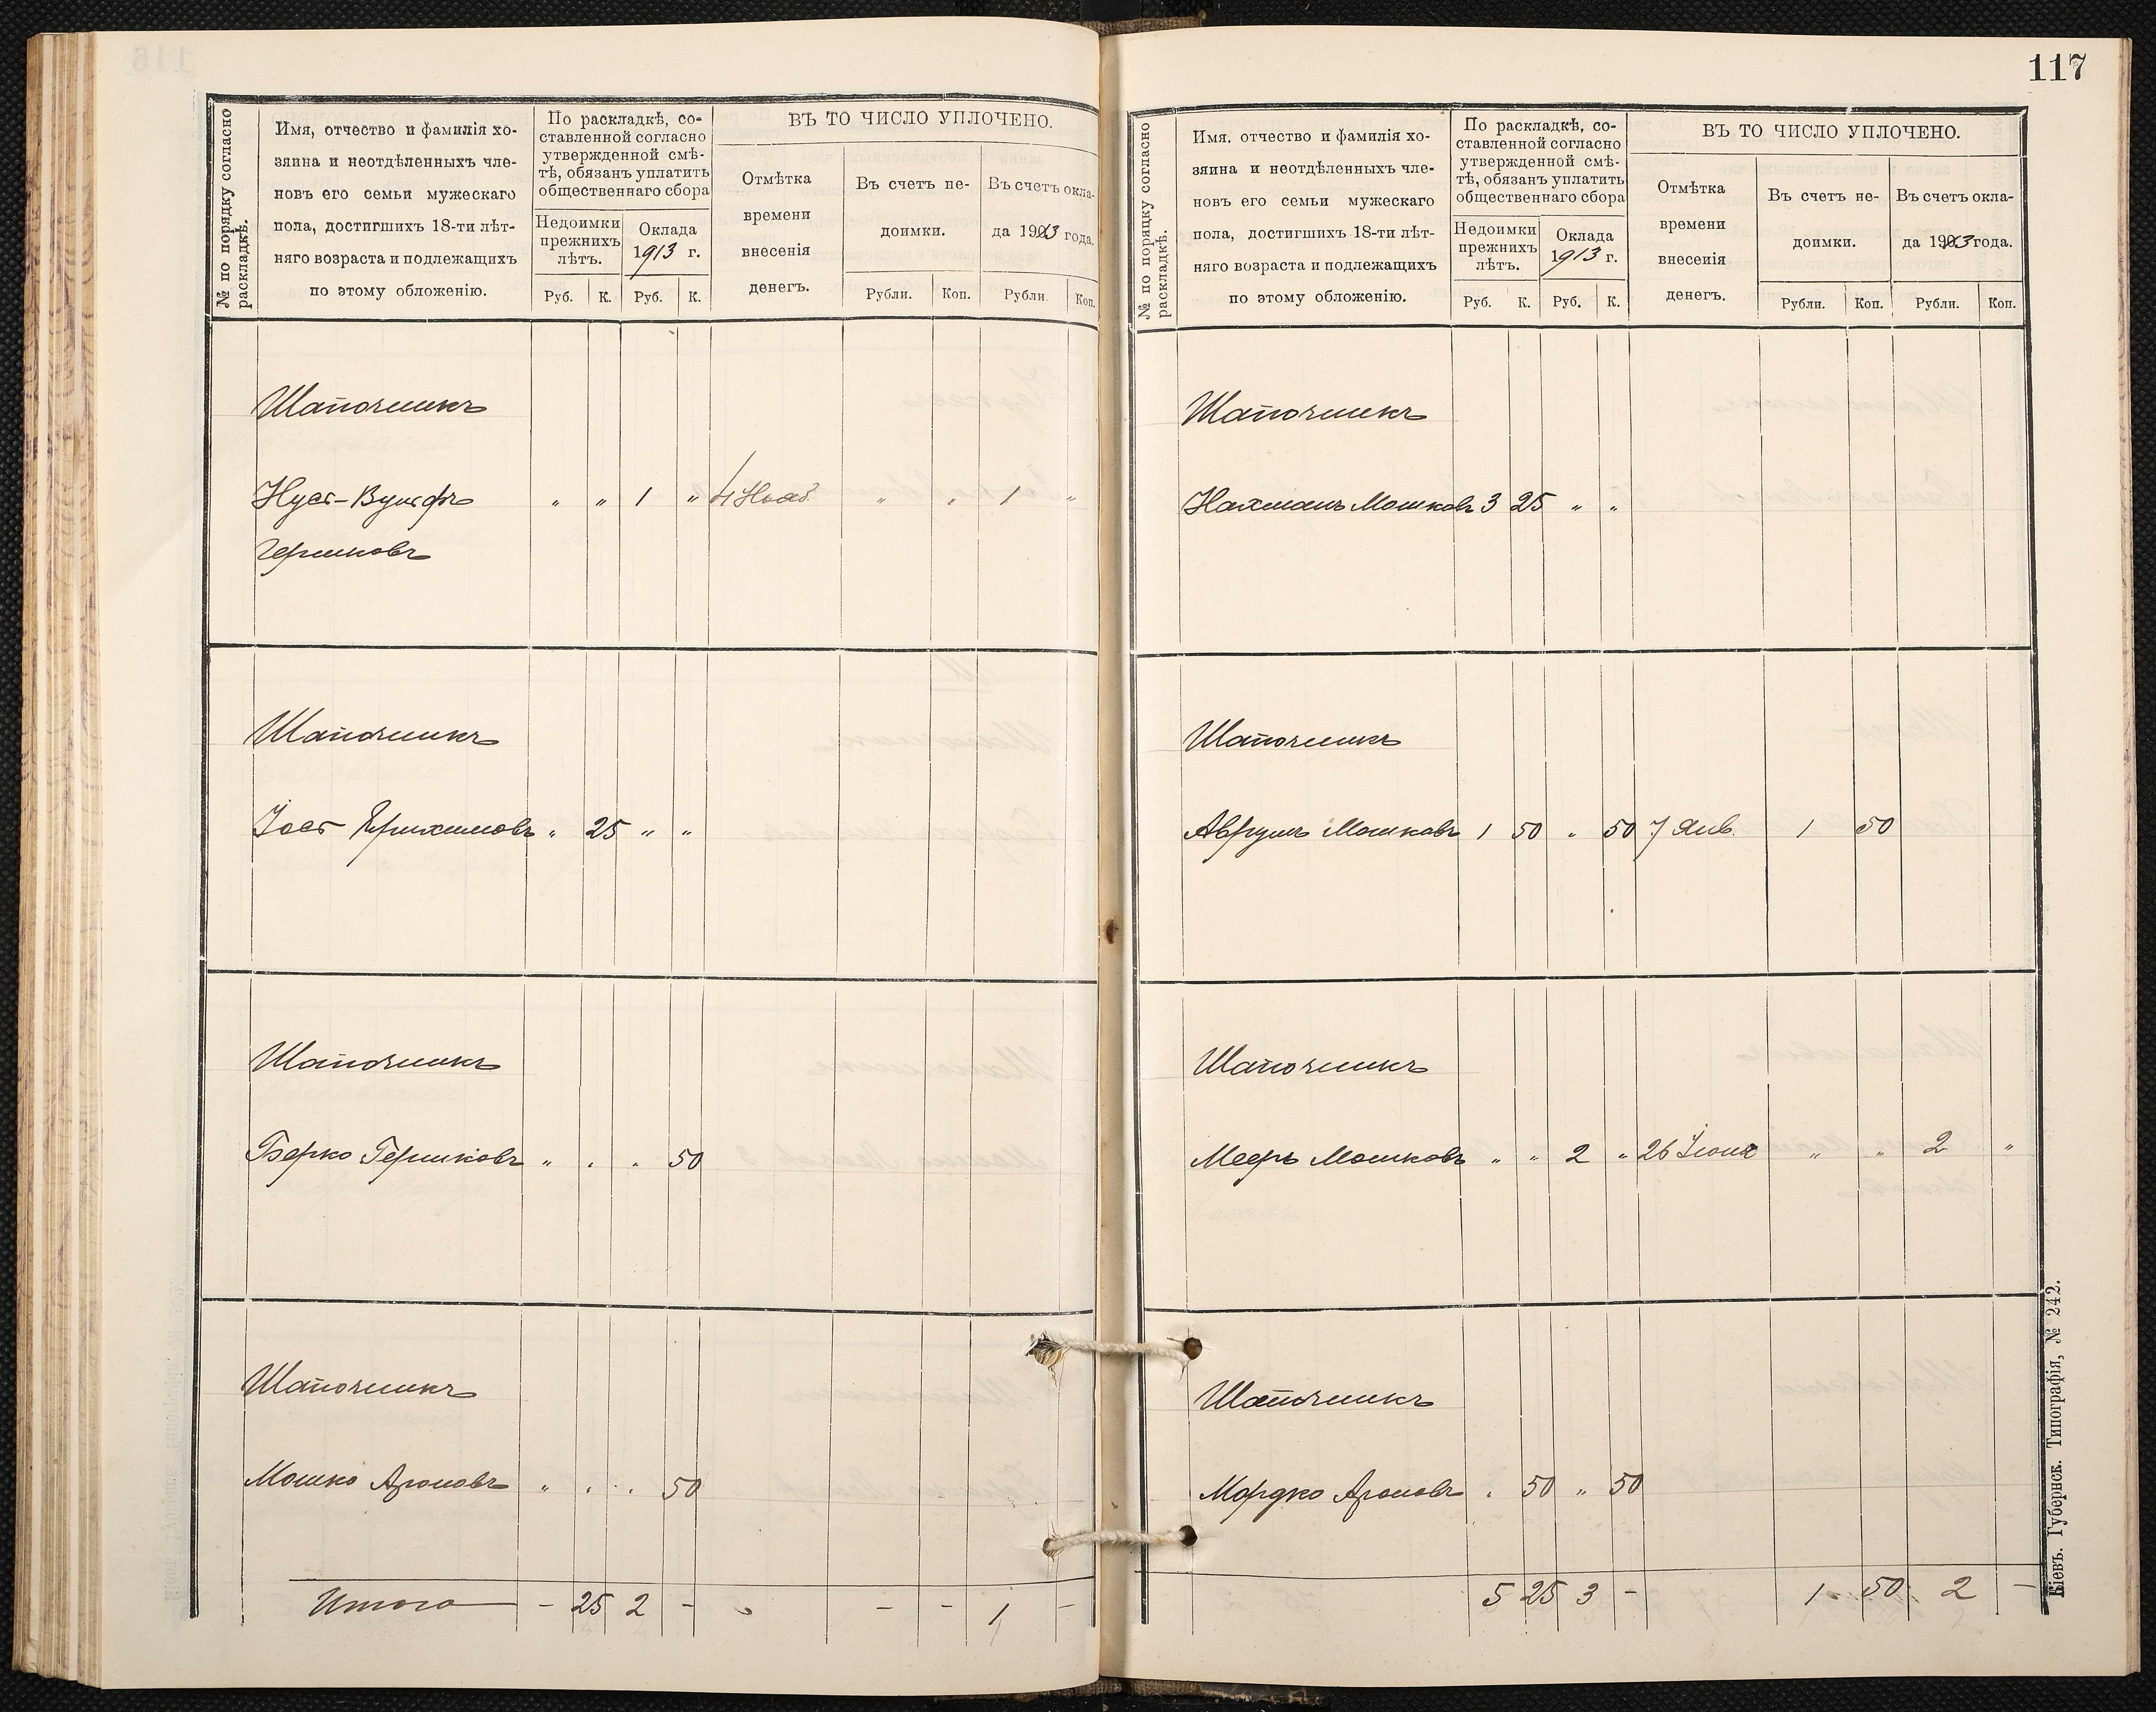 № по порядку согласно
раскладкѣ.
Имя, отчество и фамилія хо-
зяина и неотдѣленныхъ чле-
новъ его семьи мужескаго
пола, достигшихъ 18-ти лѣт-
няго возраста и подлежащихъ
по этому обложенію.
По раскладкѣ, со-
ставленной согласно
утвержденной смѣ-
тѣ, обязанъ уплатить
общественнаго сбора
Недоимки
прежнихъ
лѣтъ.
Оклада
1913 г.
Руб. К. Руб. К.
ВЪ ТО ЧИСЛО УПЛОЧЕНО.
Отмѣтка
времени
внесенія
денегъ.
Въ счетъ не-
доимки.
Въ счетъ окла-
да 1913 года.
Рубли. Коп. Рубли. Коп.
Шапочникъ
" " 1 " 4 Нояб. " " 1 "
Гершковъ
Шапочникъ
" 25 " "
Шапочникъ
Берко Гершковъ " " " 50
Шапочникъ
Мошко Ароновъ " " " 50
Итого - 25 2 - - - 1 -
117
№ по порядку согласно
раскладкѣ.
Имя, отчество и фамилія хо-
зяина и неотдѣленныхъ чле-
новъ его семьи мужескаго
пола, достигшихъ 18-ти лѣт-
няго возраста и подлежащихъ
по этому обложенію.
По раскладкѣ, со-
ставленной согласно
утвержденной смѣ-
тѣ, обязанъ уплатить
общественнаго сбора
Недоимки
прежнихъ
лѣтъ.
Оклада
1913 г.
Руб. К. Руб. К.
ВЪ ТО ЧИСЛО УПЛОЧЕНО.
Отмѣтка
времени
внесенія
денегъ.
Въ счетъ не-
доимки.
Въ счетъ окла-
да 1913 года.
Рубли. Коп. Рубли. Коп.
Шапочникъ
Нахманъ Мошковъ 3 25 " "
Шапочникъ
Аврумъ Мошковъ 1 50 " 50 7 Янв. 1 50
Шапочникъ
Мееръ Мошковъ " " 2 " 26 Іюня " " 2 "
Шапочникъ
Мордко Ароновъ " 50 " 50
5 25 3 - 1 50 2 -
Кіевъ. Губернск. Типографія, № 242.